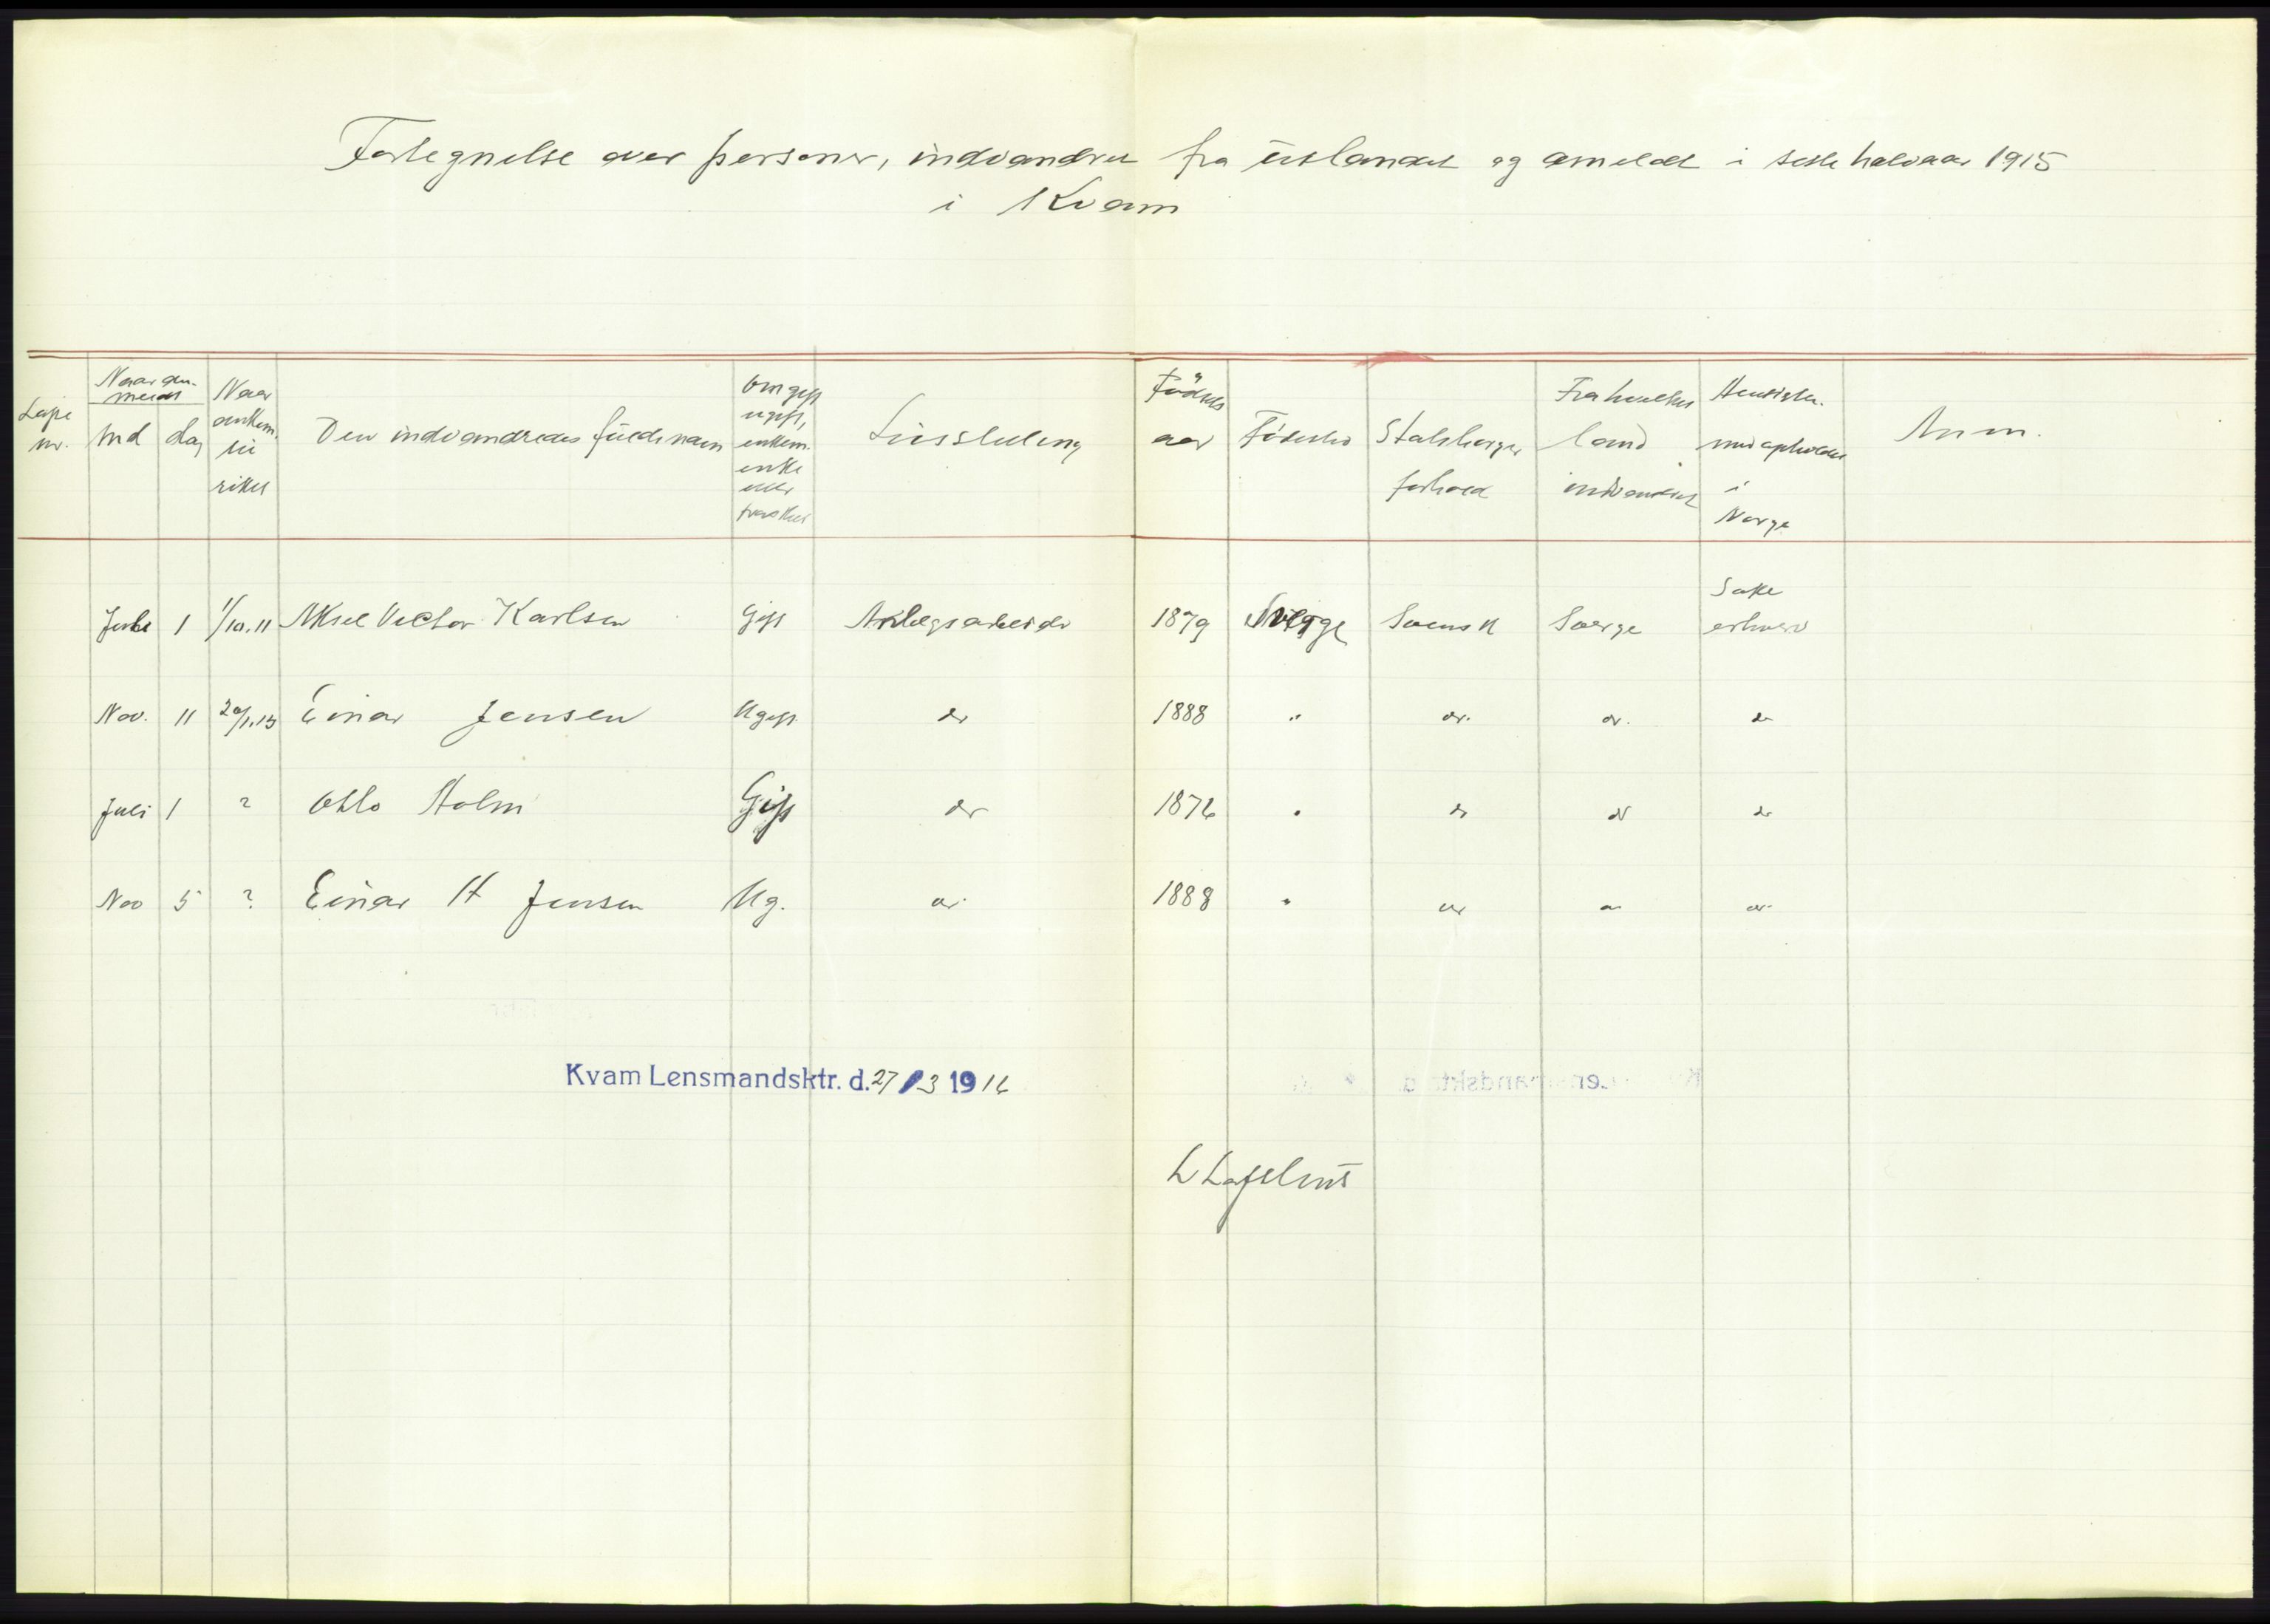 Fortegnelse over personer, indvandret fra utlandet og anmeldt i siste halvaar 1915
i Kvam
Løpe nr.
Naar anmeldt
Md
dag
Naar ankom. til riket
Den indvandredes fulde navn
Om gift, ugift, enkem. enke eller fraskilt
Livsstilling
Fødsels aar
Fødested
Statsborger forhold
Fra hvilket land indvandret
Hensigten med opholdet i Norge
Anm.
Juli 1 1/10.11 Aksel Victor Karlsen Gift Anlegsarbeider 1879 Sverige Svensk Sverge Søke erhverv
Nov. 11 20/1.13 Einar Jensen Ugift do 1888 " do. do. do
Juli 1 ? Otto Holm Gift do 1876 " do do do
Nov 5 ? Einar H Jensen Ug. do 1888 " do do do
Kvam Lensmandsktr. d. 27/3 1916